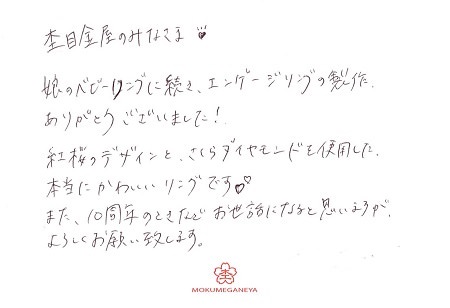 杢目金屋のみなさま♡
娘のベビーリングに続き、エンゲージリングの製作、
ありがとうございました！
紅桜のデザインと、さくらダイヤモンドを使用した、
本当にかわいいリングです♡♡
また、10周年のときなどお世話になると思いますが、
よろしくお願い致します。
MOKUMEGANEYA